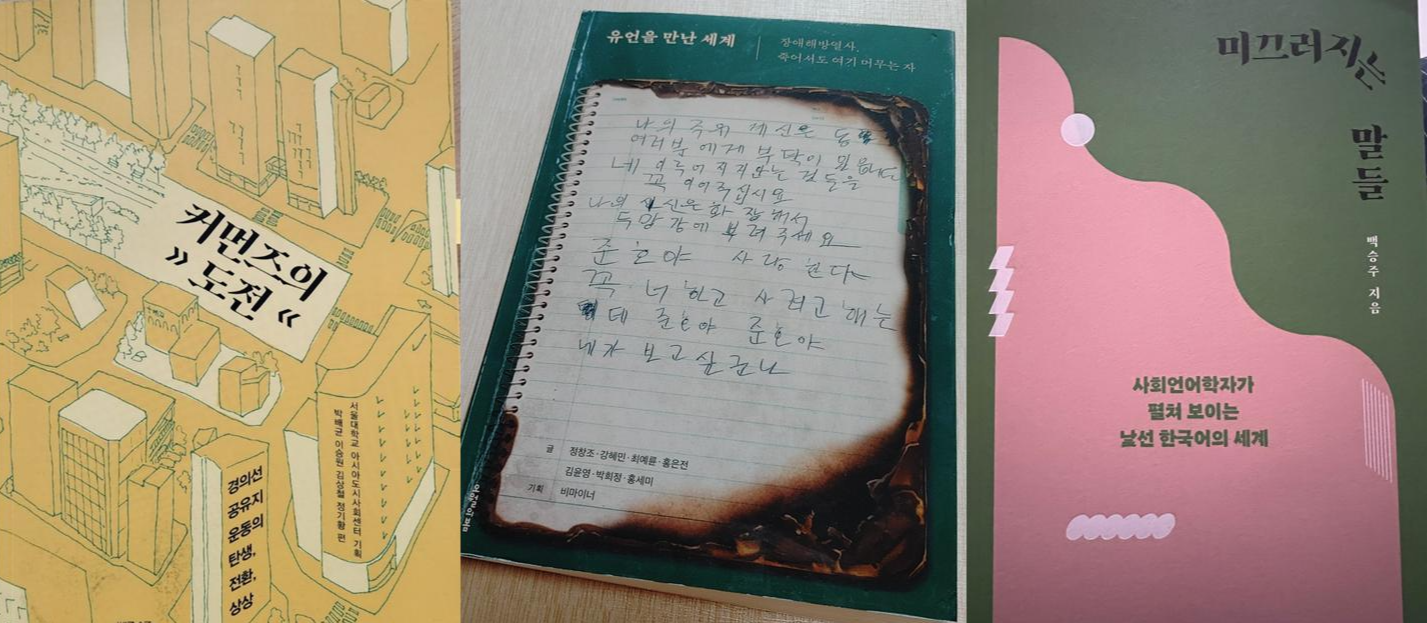 커먼즈의
» 도전 «
서울대학교 아시아도시사회센터 기획
박배균 이승원 김상철 정기황 편
경의선
공유지
운동의
탄생,
전환,
상상
유언을 만난 세계
장애해방열사,
죽어서도 여기 머무는 자
나의 국위 제신은
여러분에게 부탁이 있읍니다
네 이루어지지 않는 것들을
꼭 이어주십시요
나의 시신은 화장해서
두만강에 뿌려주세요
준호야 사랑한다
꼭 너하고 사려고 해는
데 준호야 준호야
네가 보고싶구나
글 정창조·강혜민·최예륜·홍은전
김윤영·박희정·홍세미
기획 비마이너
오월의봄
미끄러지는
말들
백승주 지음
사회언어학자가
펼쳐 보이는
낯선 한국어의 세계